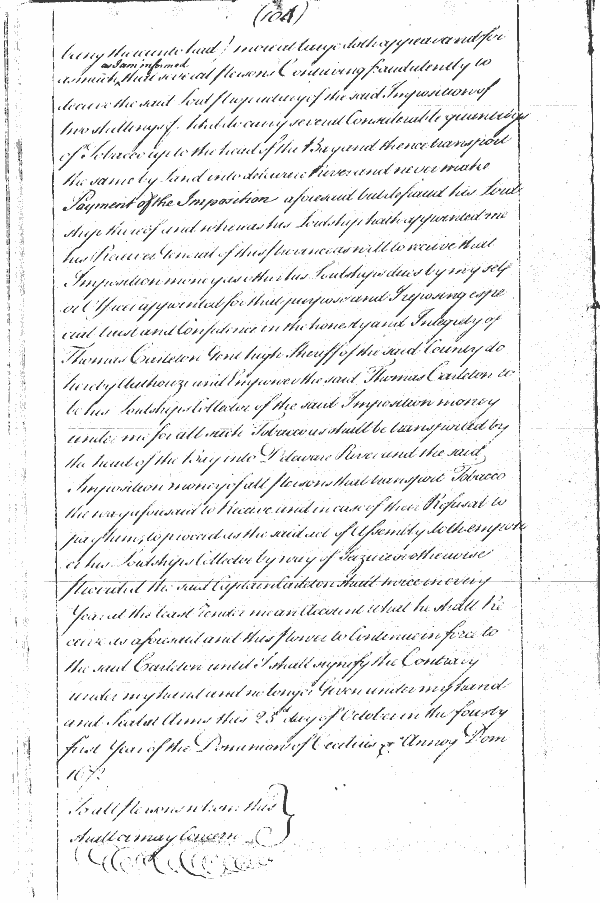 (101)
being thereunto had more at large doth appear and for
as I am informed
asmuch that several persons Contriving fraudulently to
deceive the said Lord Proprietary of the said Imposition of
two shillings p. hhd do carry several Considerable quantitys
of Tobacco up to the head of the Bay and thence transport
the same by Land into delaware River and never make
Payment of the Imposition aforesaid but defraud his Lord
ship thereof and whereas his Lordship hath appointed me
his Receiver General of this Province as well to receive that
Imposition money as other his Lordships dues by my self
or Officer appointed for that purpose and I reposing espe
cial trust and Confidence in the honesty and Integrity of
Thomas Carleton Gent high Sheriff of the said County do
hereby Authorize and Empower the said Thomas Carleton to
be his Lordships Collector of the said Imposition money
under me for all such Tobacco as shall be transported by
the head of the Bay into Delaware River and the said
Imposition money of all persons that transport Tobacco
the way aforesaid to Receive and in case of their Refusal to
pay him to proceed as the said act of Assembly doth empow
er his Lordships Collector by way of Seizure or otherwise
Provided the said Captain Carleton shall twice in every
Year at the least Render me an Account what he shall Re
ceive as aforesaid and this power to Continue in force to
the said Carleton until I shall signify the Contrary
under my hand and no longer Given under my hand
and Seal at Arms this 23rd day of October in the fourty
first Year of the Dominion of Cecilius &c Annoq Dom
167
To all Persons whom this
shall or may Concern